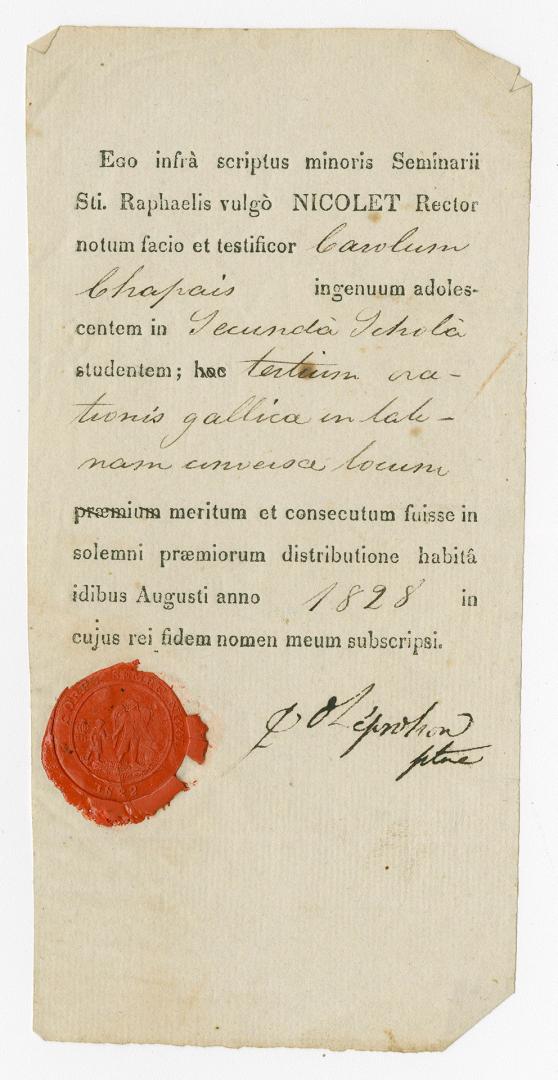 Ego infrà scriptus minoris Seminarii
Sti. Raphaelis vulgò NICOLET Rector
notum facio et testificor Carolum
Chapais ingenuum adoles-
centem in Secundâ Scholâ
studentem; hoc tertium ora-
tionis gallicæ in lati-
nam conversæ locum
præmium meritum et consecutum fuisse in
solemni præmiorum distributione habitâ
idibus Augusti anno 1828 in
cujus rei fidem nomen meum subscripsi.
Léprohon
ptre
1822